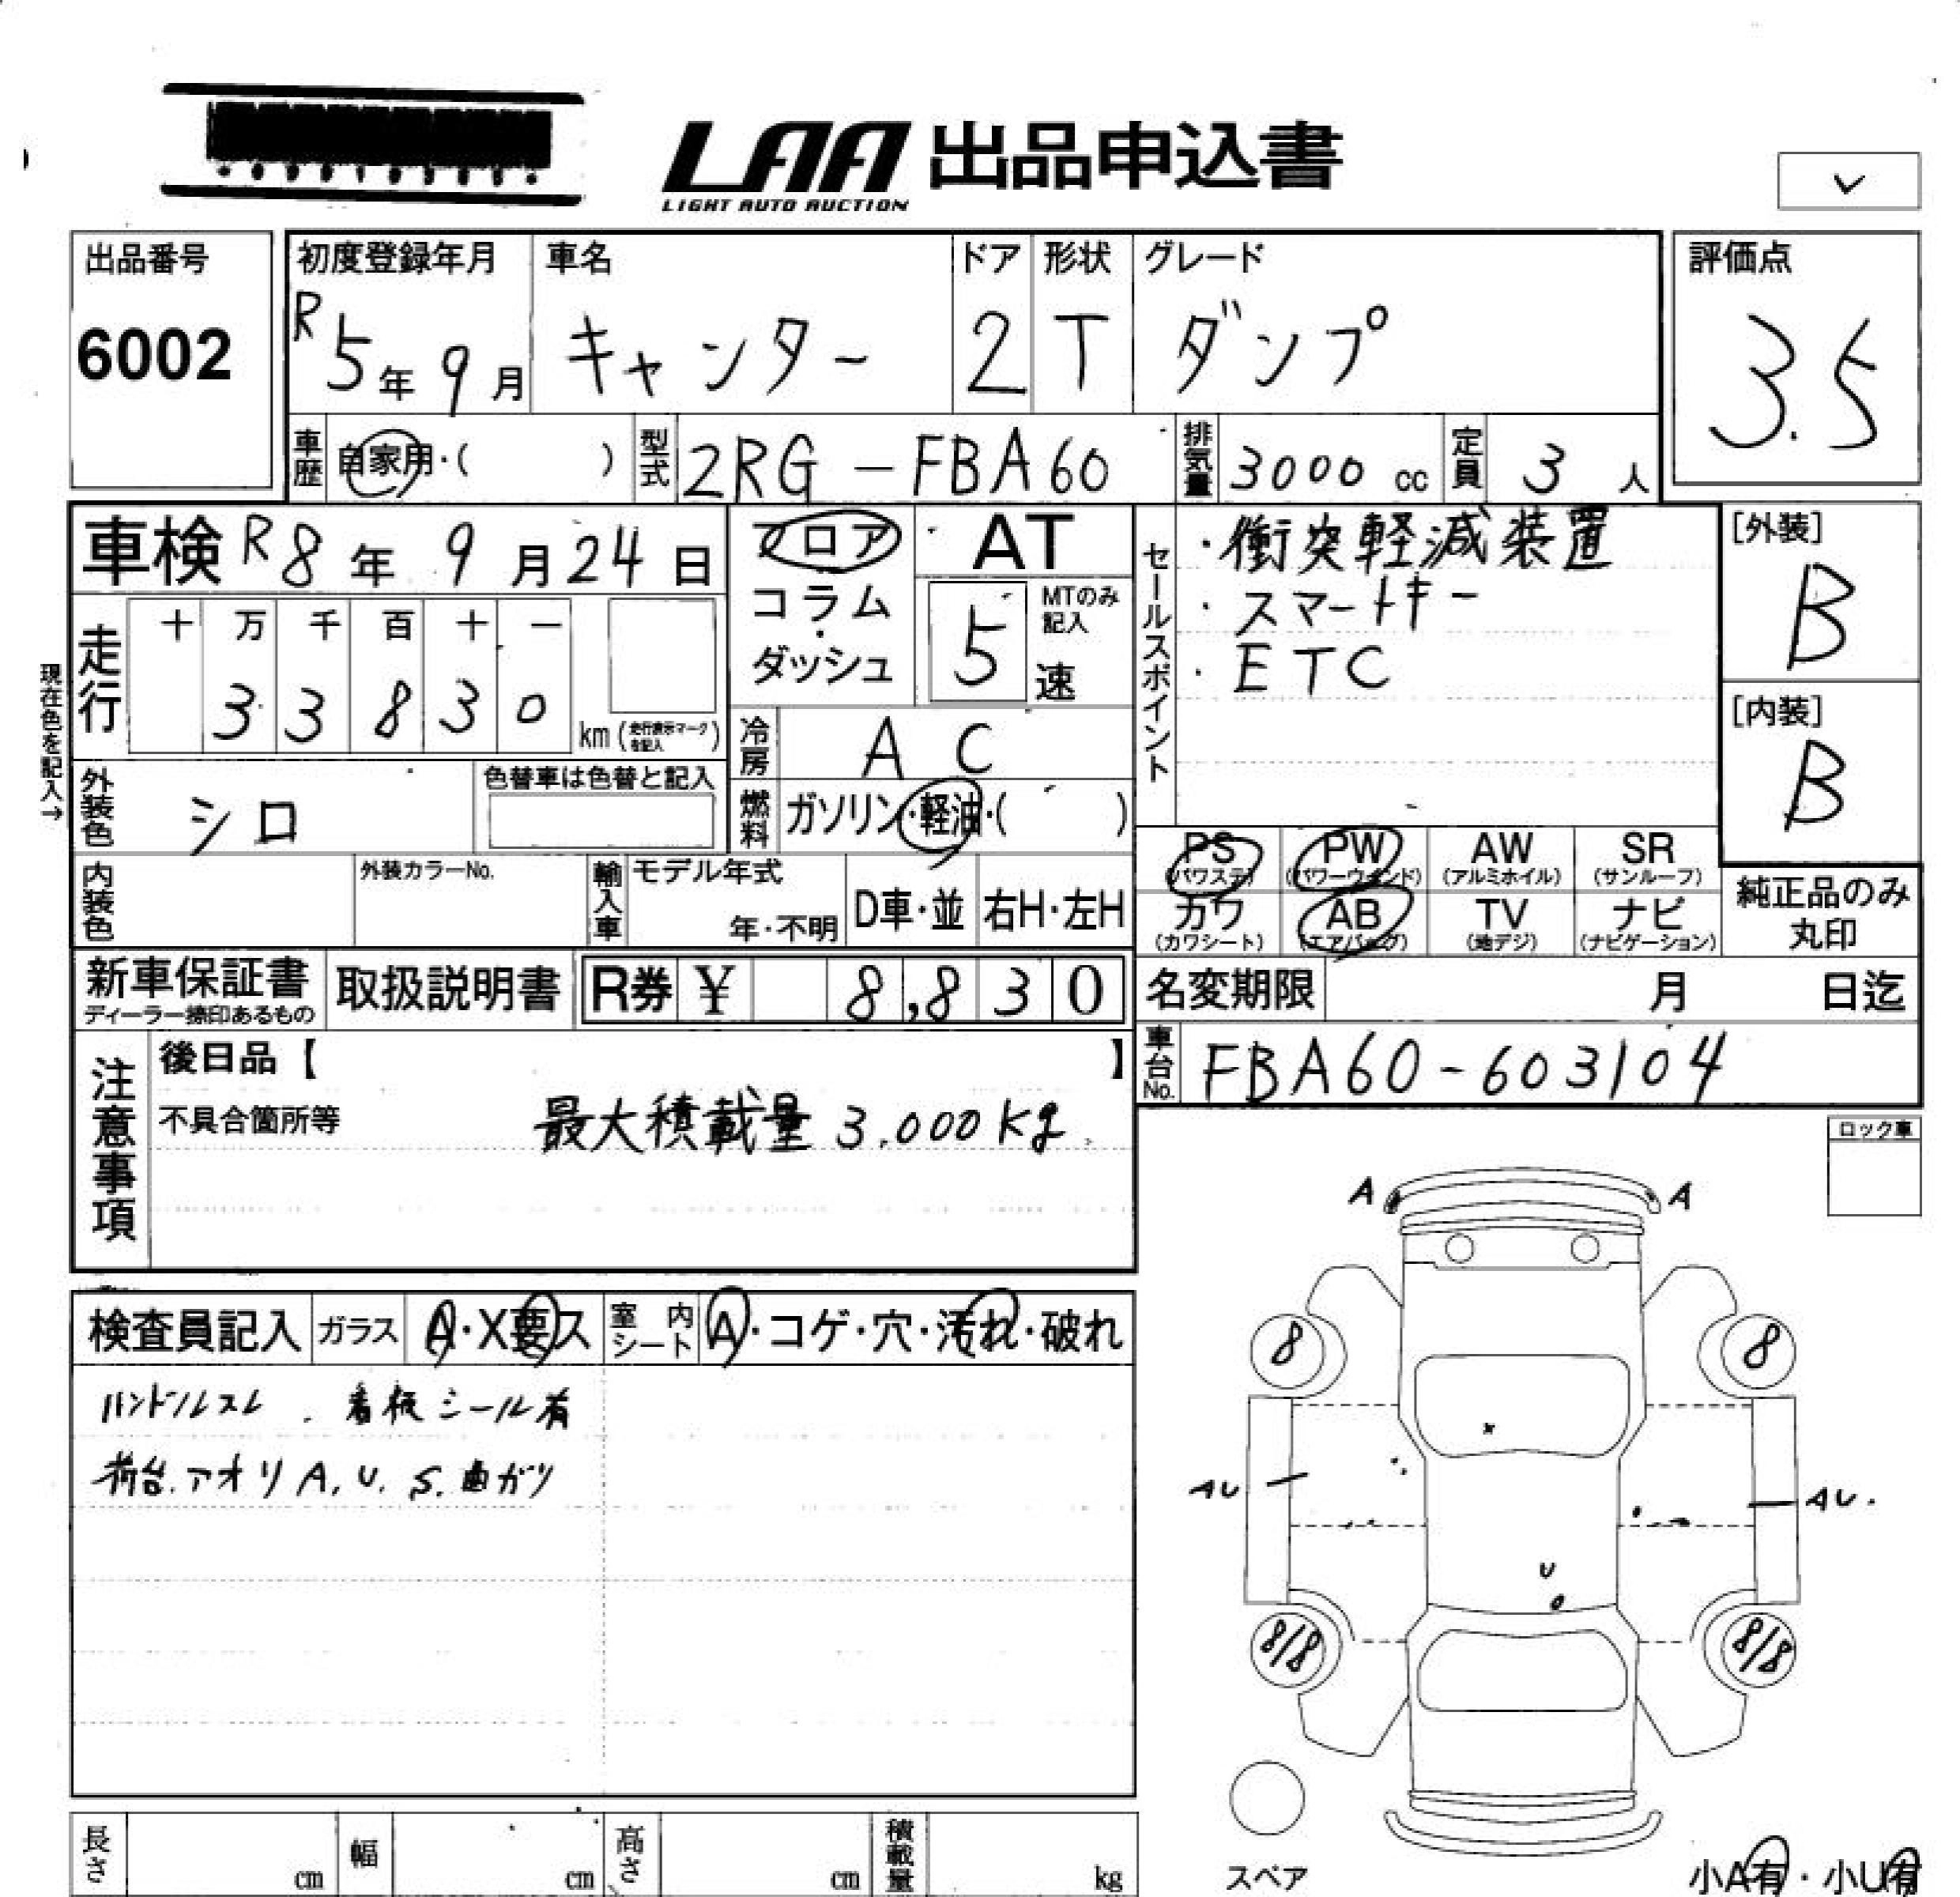 LAA 出品申込書
LIGHT AUTO AUCTION
✓
出品番号
6002
初度登録年月
R5年9月
車名
キャンター
ドア
2
形状
T
グレード
ダンプ
評価点
3.5
車歴 自家用・( )
型式 2RG-FBA60
排気量 3000 cc
定員 3 人
車検 R8年9月24日
フロア
コラム
・
ダッシュ
AT
5速
MTのみ記入
セールスポイント
・衝突軽減装置
・スマートキー
・ETC
[外装]
B
[内装]
B
現在色を記入→
走行
十 万 千 百 十 一
3 3 8 3 0
km (走行表示マークを記入)
冷房 AC
外装色 シロ
色替車は色替と記入
燃料 ガソリン・軽油・( )
PS (パワステ)
PW (パワーウインド)
AW (アルミホイル)
SR (サンルーフ)
カワ (カワシート)
AB (エアバッグ)
TV (地デジ)
ナビ (ナビゲーション)
純正品のみ丸印
内装色
外装カラーNo.
輸入車
モデル年式
年・不明
D車・並
右H・左H
新車保証書
ディーラー捺印あるもの
取扱説明書
R券 ¥ 8,830
名変期限 月 日迄
車台No. FBA60-603104
注意事項
後日品【 】
不具合箇所等
最大積載量 3.000kg
ロック車
検査員記入
ガラス A・X要ス
室内シート A・コゲ・穴・汚れ・破れ
ハンドルスレ . 看板シール有
荷台.アオリ A. U. S. 曲ガリ
A A
8 8
AU AU.
U
8/8 8/8
スペア
小A有・小U有
長さ cm
幅 cm
高さ cm
積載量 kg